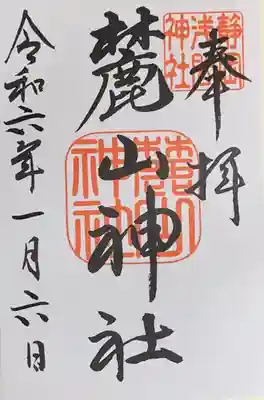 奉拝
静岡
浅間
神社
麓山神社
麓山
神社
令和六年一月六日